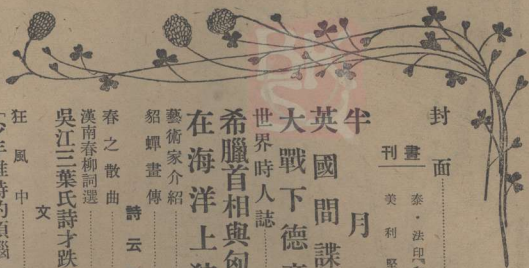 封面
畫刊
泰·法印
美利堅
半月
英國間諜
大戰下德
世界時人誌
希臘首相與匈
在海洋上
藝術家介紹
貂蟬畫傳
詩云
春之散曲
漢南春柳詞選
吳江三葉氏詩才跌
文
狂風中